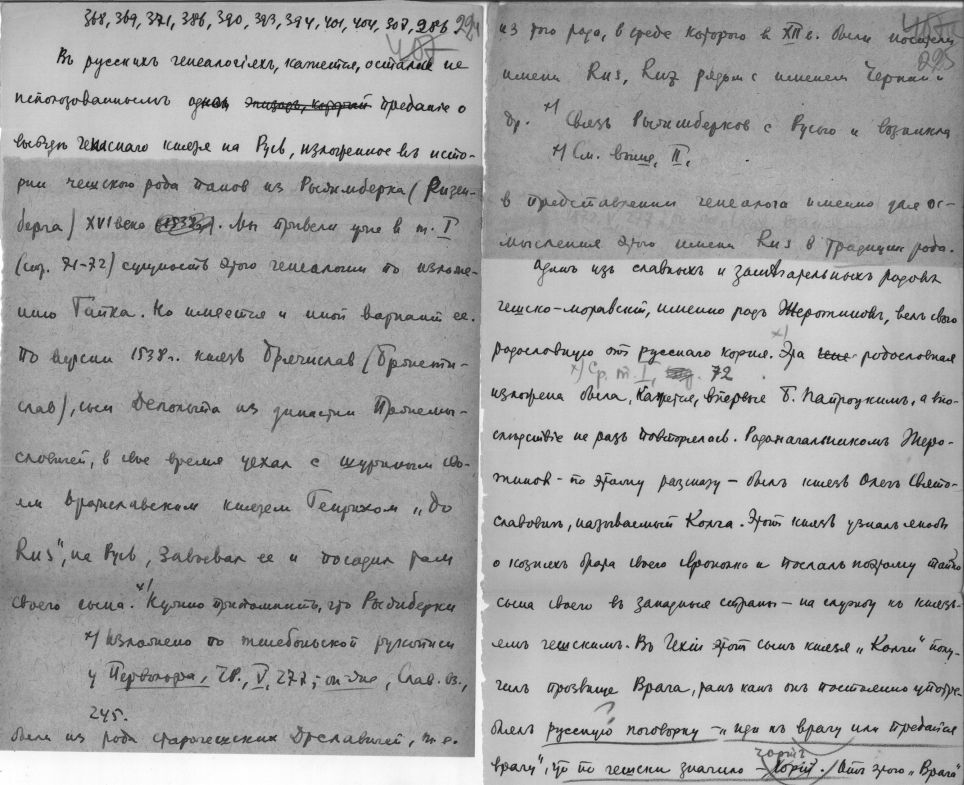 368, 369, 371, 386, 390, 393, 394, 401, 404, 307, 286 224
407
Въ русскихъ генеалогіяхъ, кажется, остался не
использованнымъ однимъ эпизодъ, который преданіе о
чешскаго князя на Русь, изложенное въ исто-
рии чешского рода панов из Рызмберка (Ризен-
берга) XVI века (1532). Мы привели уже в т. I
(стр. 71-72) сущность этого генеалогии по изложе-
нию Гайка. Но имеется и иной вариант ее.
По версии 1538 г. князь Брячислав (Бржети-
слав), сын Депольта из династии Пржемы-
словичей, в свое время уехал с шурином сво-
им Вратиславским князем Генрихом „до
Rus", на Русь, завоевал ее и посадил там
своего сына. х) Нужно припомнить, что Рызмберки
х) Изложено по тшебоньской рукописи
у Первольфа, ЧР., V, 277; он же, Слав. вз.,
245.
были из рода старочешских Дрславичей, т.е.
407а
225
из того рода, в среде которого в XII в. были носители
имени Rus, Ruz рядом с именем Чернин и
др. х) Связь Рызмберков с Русью и возникла
х) См. выше, II,
в представлении генеалога именно для ос-
мысления этого имени Rus в традиции рода.
Одинъ изъ славныхъ и замѣчательныхъ родовъ
чешско-моравскій, именно родъ Жеротиновъ, велъ свою
родословную отъ русскаго корня. х) Эта родословная
х) Ср. т. I, 72
изложена была, кажется, впервые Б. Папроцкимъ, а впо-
слѣдствіе не разъ повторялась. Родоначальникомъ Жеро-
тинов - по этому разсказу - былъ князь Олегъ Свято-
славовичъ, называемый Колга. Этотъ князь узналъ якобы
о козняхъ брата своего Ярополка и послалъ поэтому тайно
сына своего въ западныя страны - на службу къ князь-
ямъ чешскимъ. Въ Чехіи этотъ сынъ князя „Колги" полу-
чилъ прозвище Врага, такъ какъ онъ постоянно употре-
блялъ русскую поговорку - „иди къ врагу или предайся
чортъ
врагу", что по чешски значило - чортъ. Отъ этого „Врага"